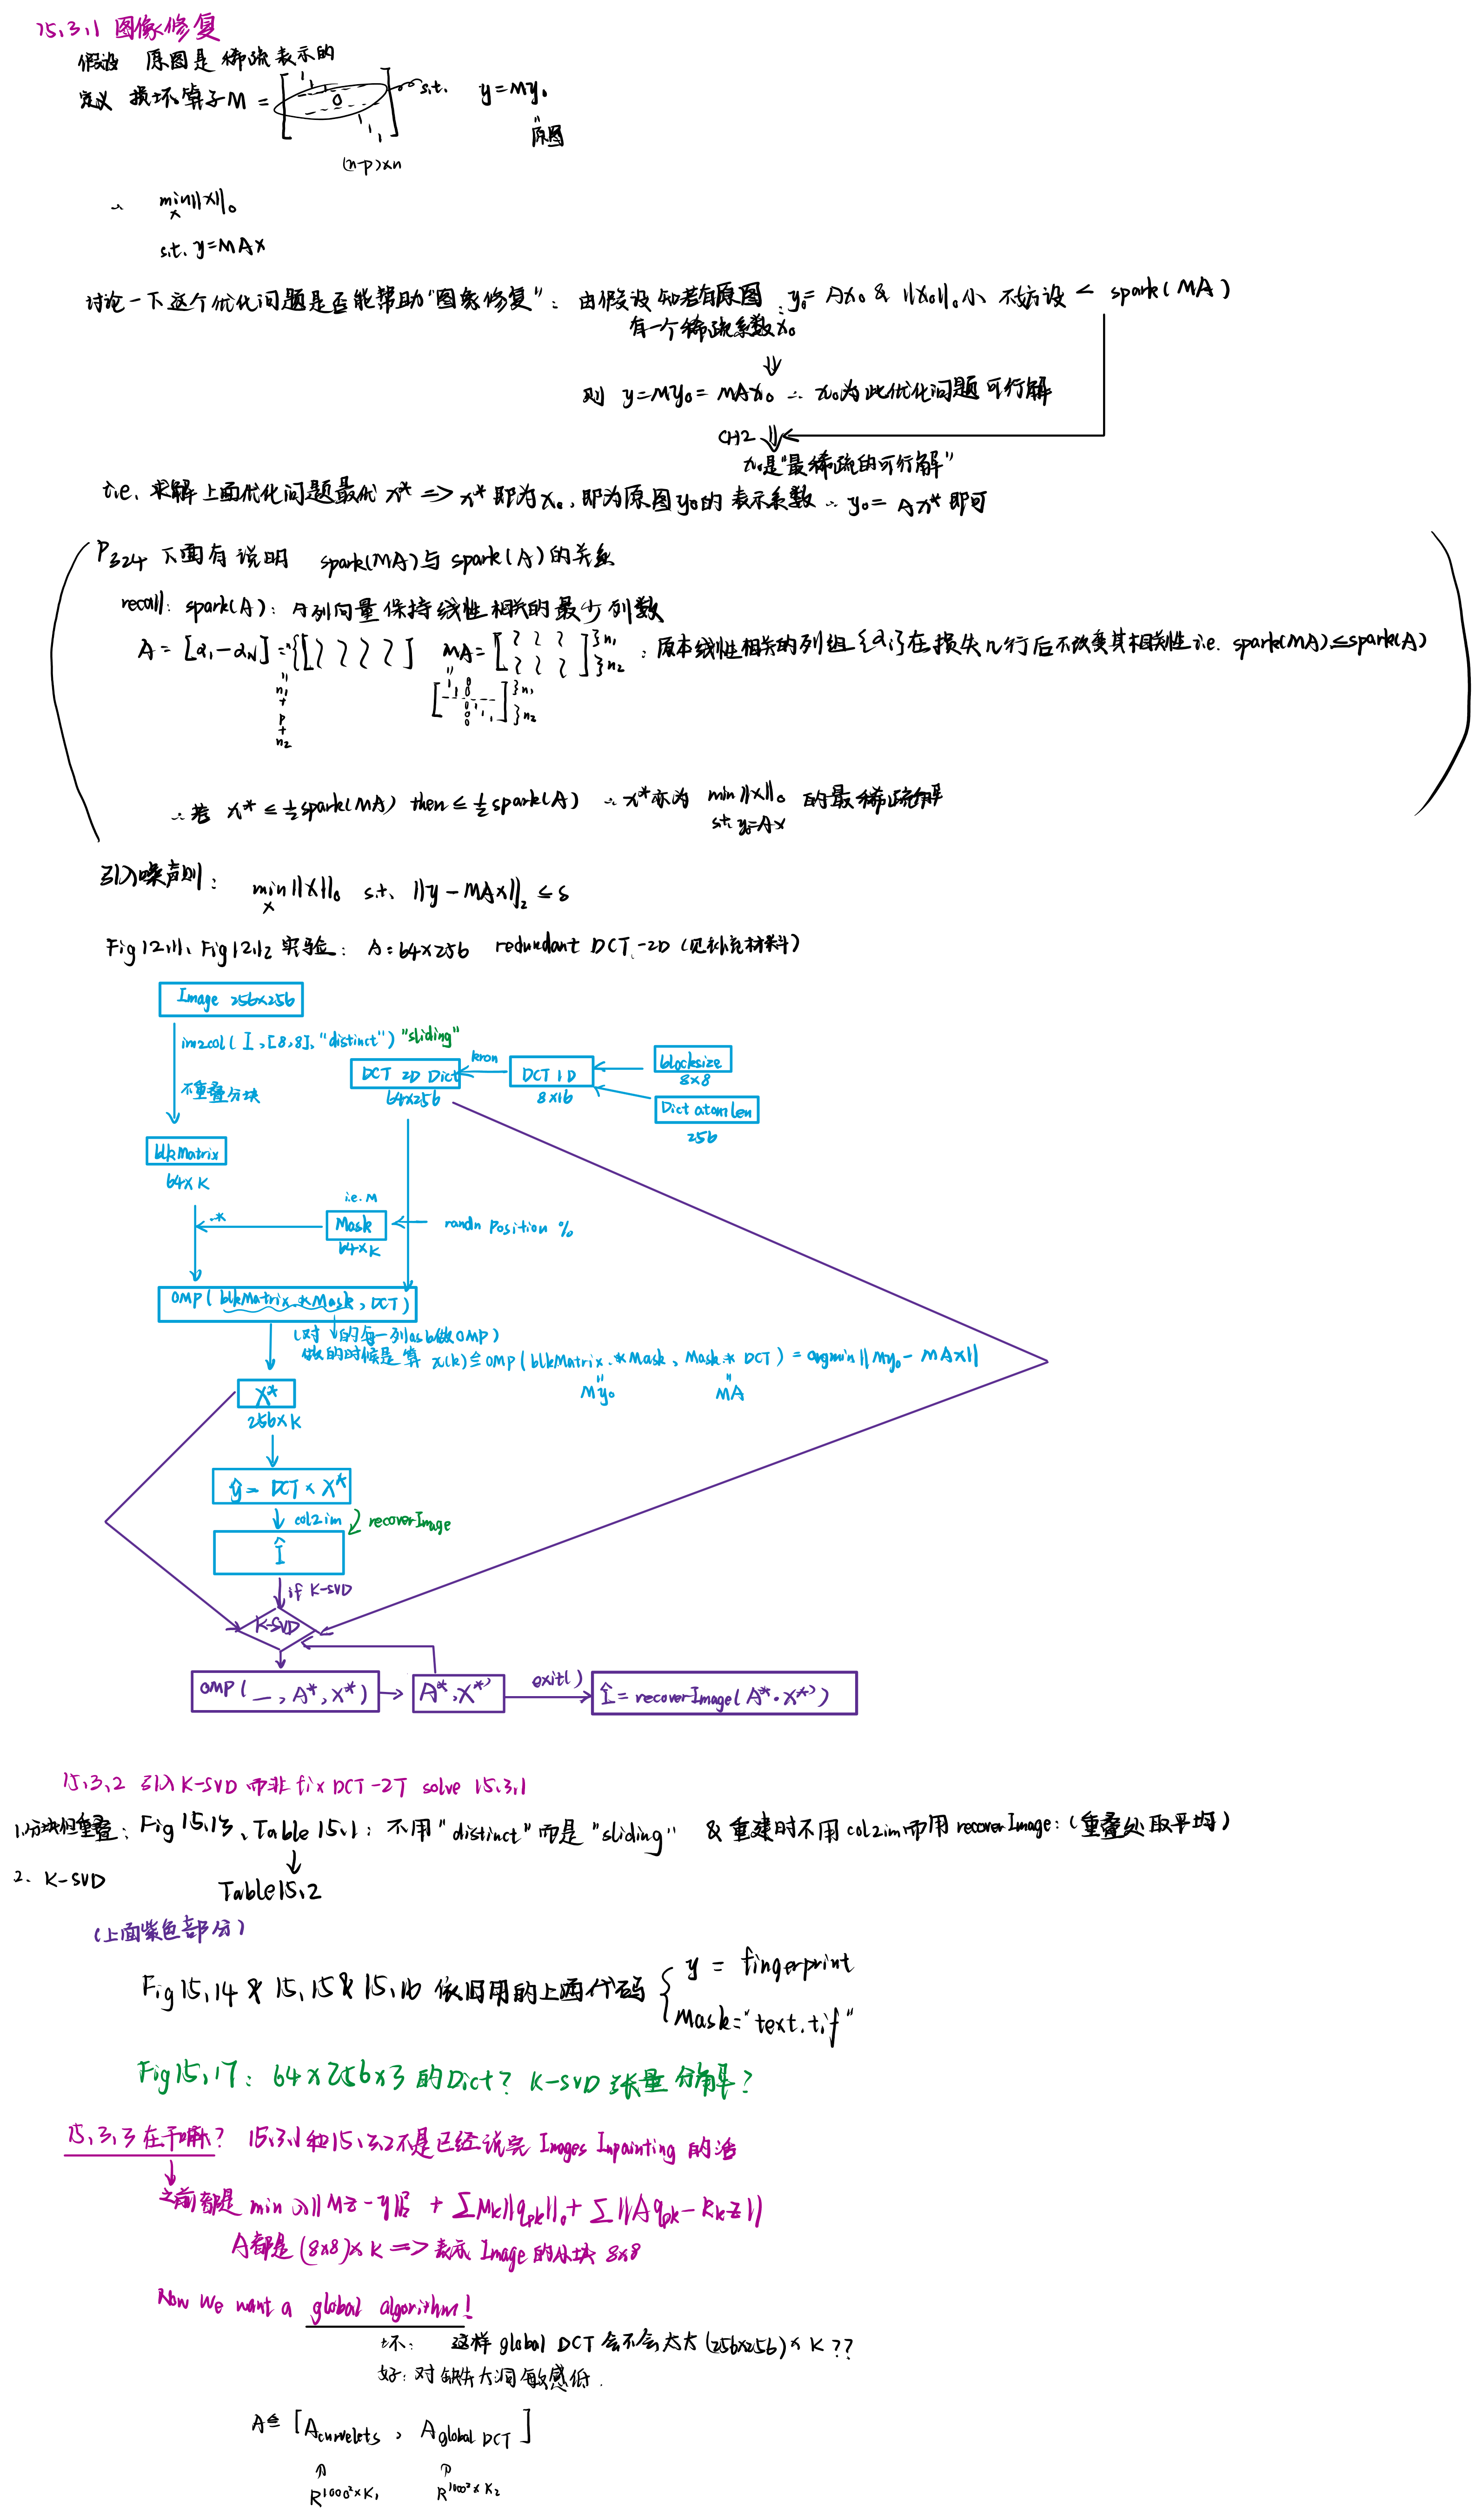 15.3.1 图像修复
假设 原图是稀疏表示的
定义 损坏算子M = [ 0 ] s.t. y=My₀
原图
(n-p)×n
∴ min‖x‖₀
x
s.t. y=MAx
讨论一下这个优化问题是否能帮助“图象修复”: 由假设知若有原图 y₀= Ax₀ & ‖x₀‖₀小 不妨设 < spark(MA)
有一个稀疏系数x₀
⇓
则 y=My₀= MAx₀ ∴ x₀为此优化问题可行解
CH2 ⇓
x₀是“最稀疏的可行解”
i.e. 求解上面优化问题最优 x* => x* 即为x₀, 即为原图y₀的 表示系数 ∴ y₀= Ax* 即可
P324 下面有说明 spark(MA)与spark(A)的关系
recall: spark(A): A列向量保持线性相关的最少列数
A = [α₁-α_N] = MA = }n₁ }n₂ : 原本线性相关的列组{αᵢ}在损失几行后不改变其相关性 i.e. spark(MA)≤spark(A)
n₁
+
p
+
n₂
}n₁
}n₂
∴若 x* ≤ ½spark(MA) then ≤ ½spark(A) ∴x*亦为 min‖x‖₀ 的最稀疏解
s.t. y₀=Ax
引入噪声则: min‖x‖₀ s.t. ‖y-MAx‖₂ ≤ δ
x
Fig 12.11, Fig 12.12 实验: A: 64×256 redundant DCT-2D (见补充材料)
Image 256×256
im2col( I, [8,8], "distinct") "sliding"
不重叠分块
DCT 2D Dict
64×256
kron
DCT 1D
8×16
blocksize
8×8
Dict atom len
256
blkMatrix
64×K
i.e. M
.*
Mask
64×K
randn Position %
OMP( blkMatrix.*Mask, DCT)
(对 的每一列as b做OMP)
做的时候是算 x(k)≙OMP( blkMatrix.*Mask, Mask.* DCT) = argmin‖My₀ - MAx‖
My₀
MA
X*
256×K
ŷ = DCT × X*
col2im
recoverImage
Î
if K-SVD
K-SVD
OMP( _ , A*, X*)
A*, X*'
exit()
Î = recoverImage( A*·X*')
15.3.2 引入K-SVD 而非 fix DCT-2T solve 15.3.1
1.分块但重叠: Fig 15.13, Table 15.1: 不用 "distinct" 而是 "sliding" & 重建时不用col2im而用 recoverImage: (重叠处取平均)
↓
2. K-SVD
Table 15.2
(上面紫色部分)
Fig 15.14 & 15.15 & 15.16 依旧用的上面代码 { y = fingerprint
Mask="text.tif"
Fig 15.17: 64×256×3 的Dict? K-SVD 张量分解?
15.3.3 在干嘛? 15.3.1和15.3.2不是已经说完 Images Inpainting 的活
之前都是 min λ‖Mz-y‖₂² + ΣMk‖qpk‖₀ + Σ‖Aqpk - Rkz‖
A都是 (8×8)×K => 表示 Image 的小块 8×8
Now We want a global algorithm!
坏: 这样 global DCT 会不会太大 (256×256)×K ??
好: 对缺失大洞敏感低.
A≙ [A curvelets , A global DCT ]
R^{1000²×K₁}
R^{1000²×K₂}